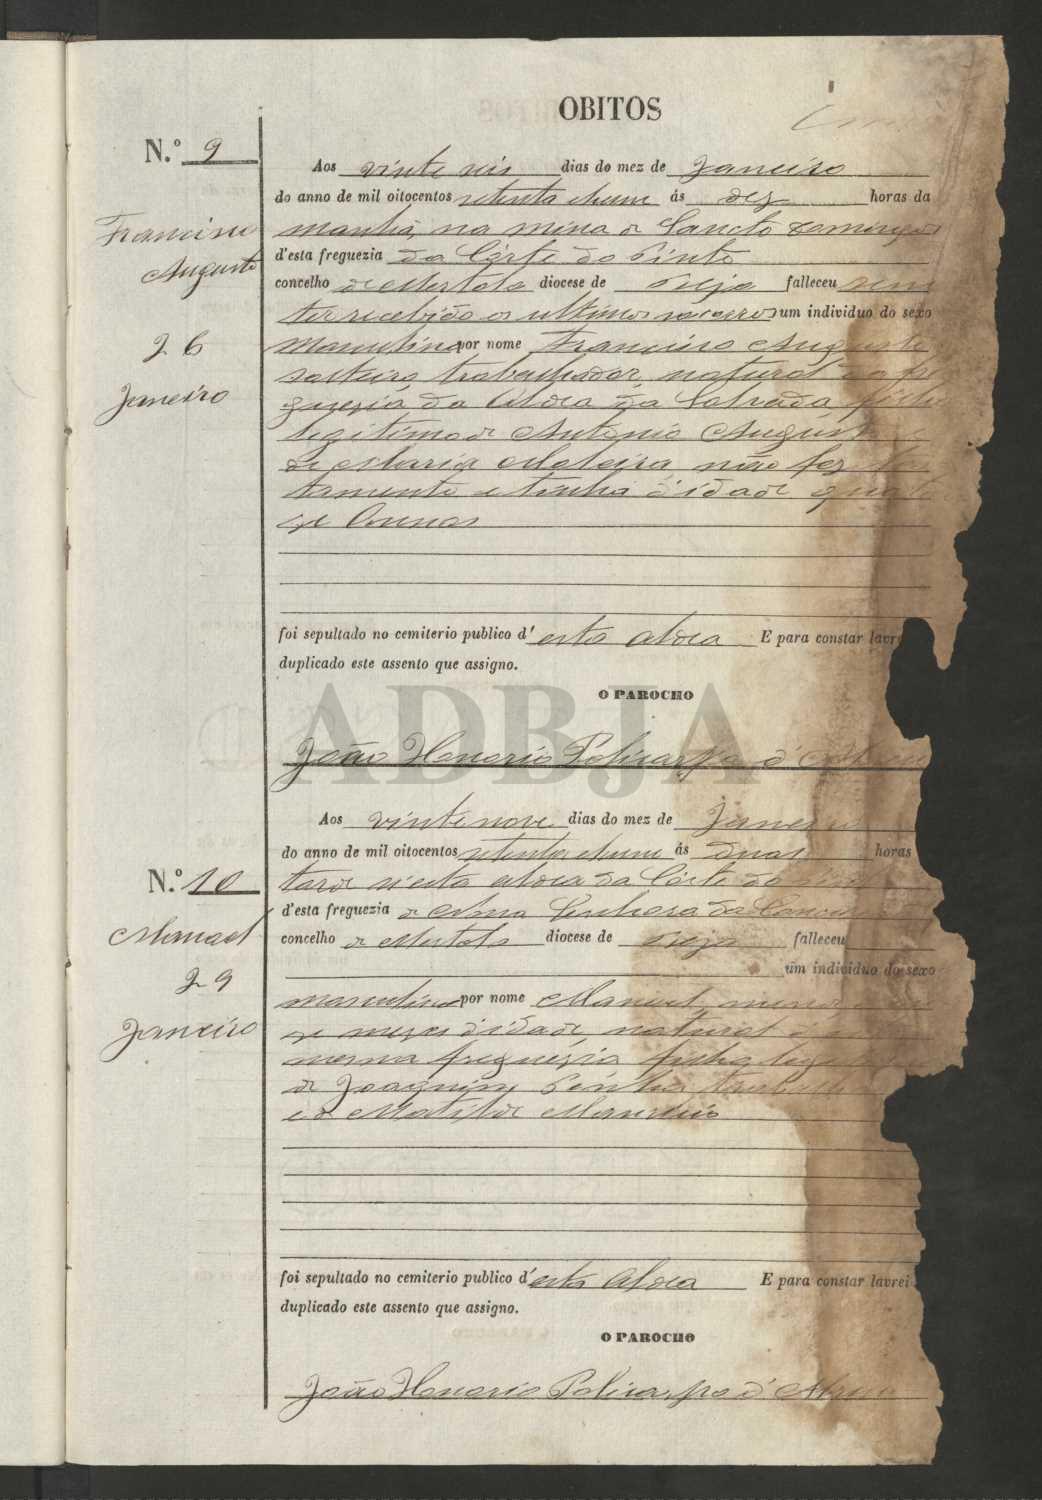 OBITOS
N.º 9
Francisco
Augusto
26
Janeiro
Aos vinte seis dias do mez de Janeiro
do anno de mil oitocentos setenta e hum ás dez horas da
manhã, na mina de Sancto Domingos
d'esta freguezia da Côrte do Pinto
concelho de Mertola diocese de Beja falleceu sem
ter recebido os ultimos socorros um individuo do sexo
masculino por nome Francisco Augusto
solteiro, trabalhador, natural da fre
guezia da Aldea da Salvada, filho
legitimo de Antonio Augusto
de Maria não fez tes
tamento e tinha d'idade
ze annos
foi sepultado no cemiterio publico d'esta aldea E para constar lavrei
duplicado este assento que assigno.
O PAROCHO
João Honorio Policarpo d'Abreu
N.º 10
Manoel
29
Janeiro
Aos vinte nove dias do mez de Janeiro
do anno de mil oitocentos setenta e hum ás duas horas
tarde n'esta aldea da Côrte do Pinto
d'esta freguezia de Nossa Senhora da Conceição
concelho de Mertola diocese de Beja falleceu
um individuo do sexo
masculino por nome Manoel, menor
ze mezes d'idade, natural d
mesma freguezia, filho leg
de Joaquim trabal
e de Matilde
foi sepultado no cemiterio publico d'esta Aldea E para constar lavrei
duplicado este assento que assigno.
O PAROCHO
João Honorio Policarpo d'Abreu
ADBJA